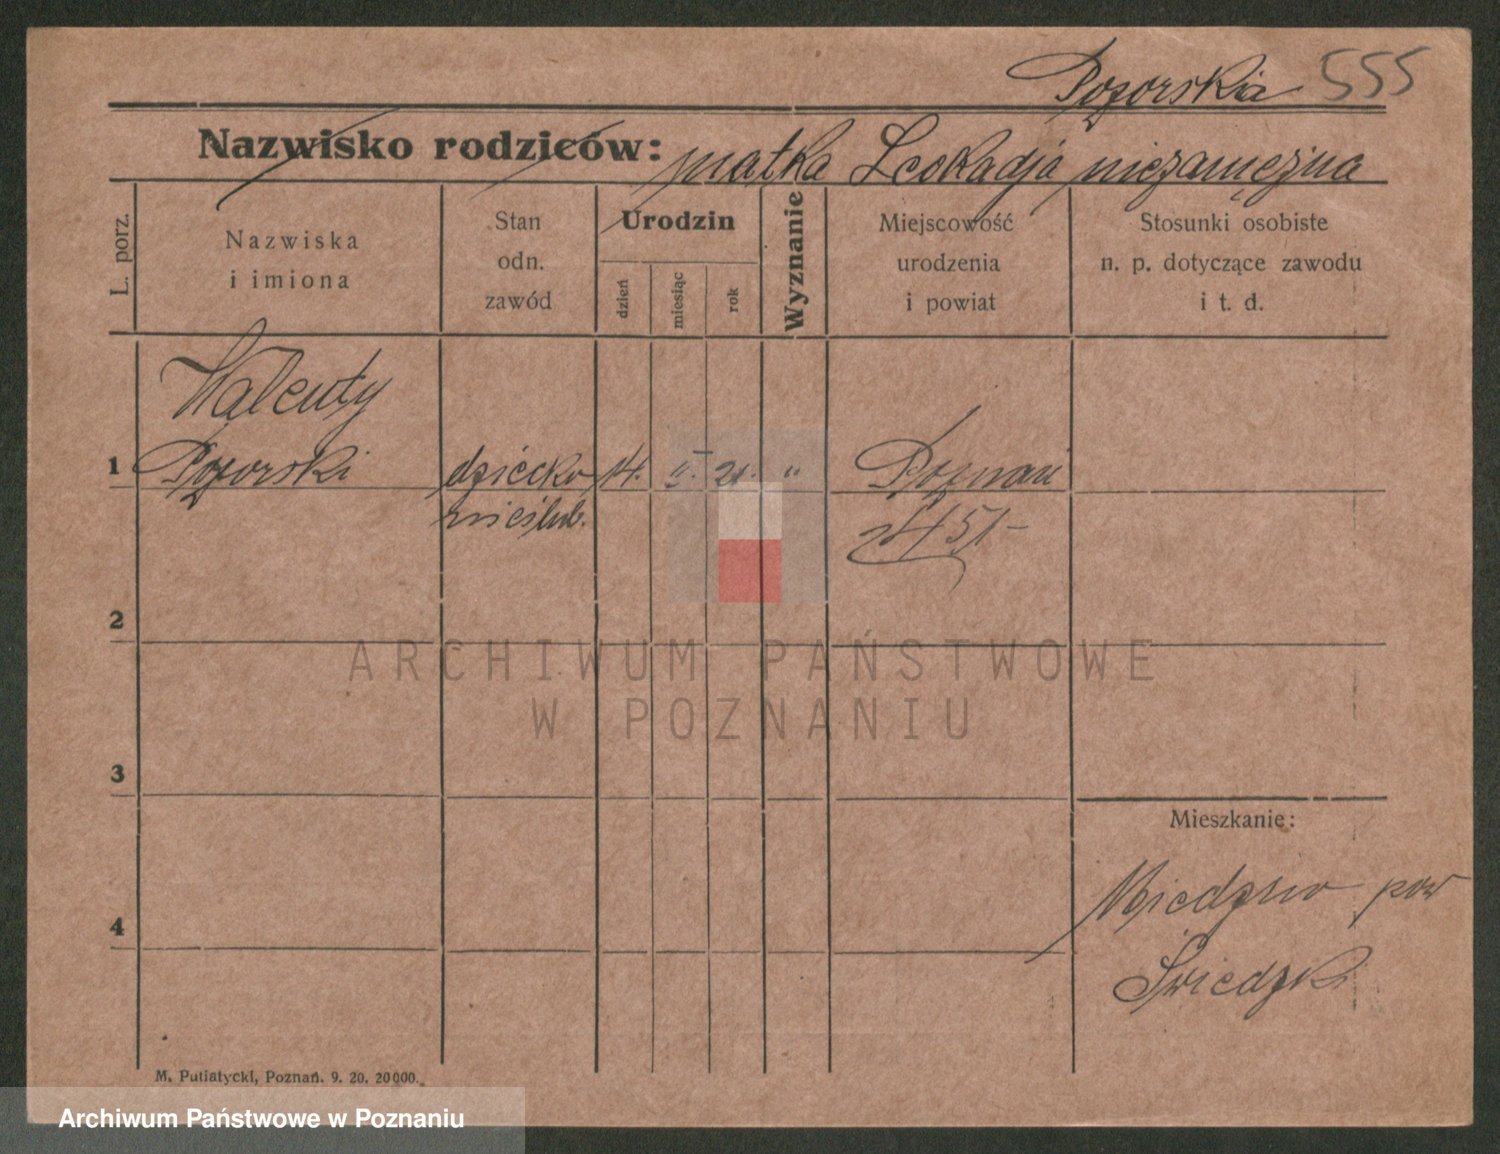 Pogorska 555
Nazwisko rodziców: matka Leokadja niezamężna
L. porz.
Nazwiska
i imiona
Stan
odn.
zawód
Urodzin
dzień
miesiąc
rok
Wyznanie
Miejscowość
urodzenia
i powiat
Stosunki osobiste
n. p. dotyczące zawodu
i t. d.
Walenty
1 Pogorski dziecko 14. II. 21. " Poznań
nieślub. 451-
2
ARCHIWUM PAŃSTWOWE
W POZNANIU
3
Mieszkanie:
pow
4
M. Putiatycki, Poznań. 9. 20. 20000.
Archiwum Państwowe w Poznaniu